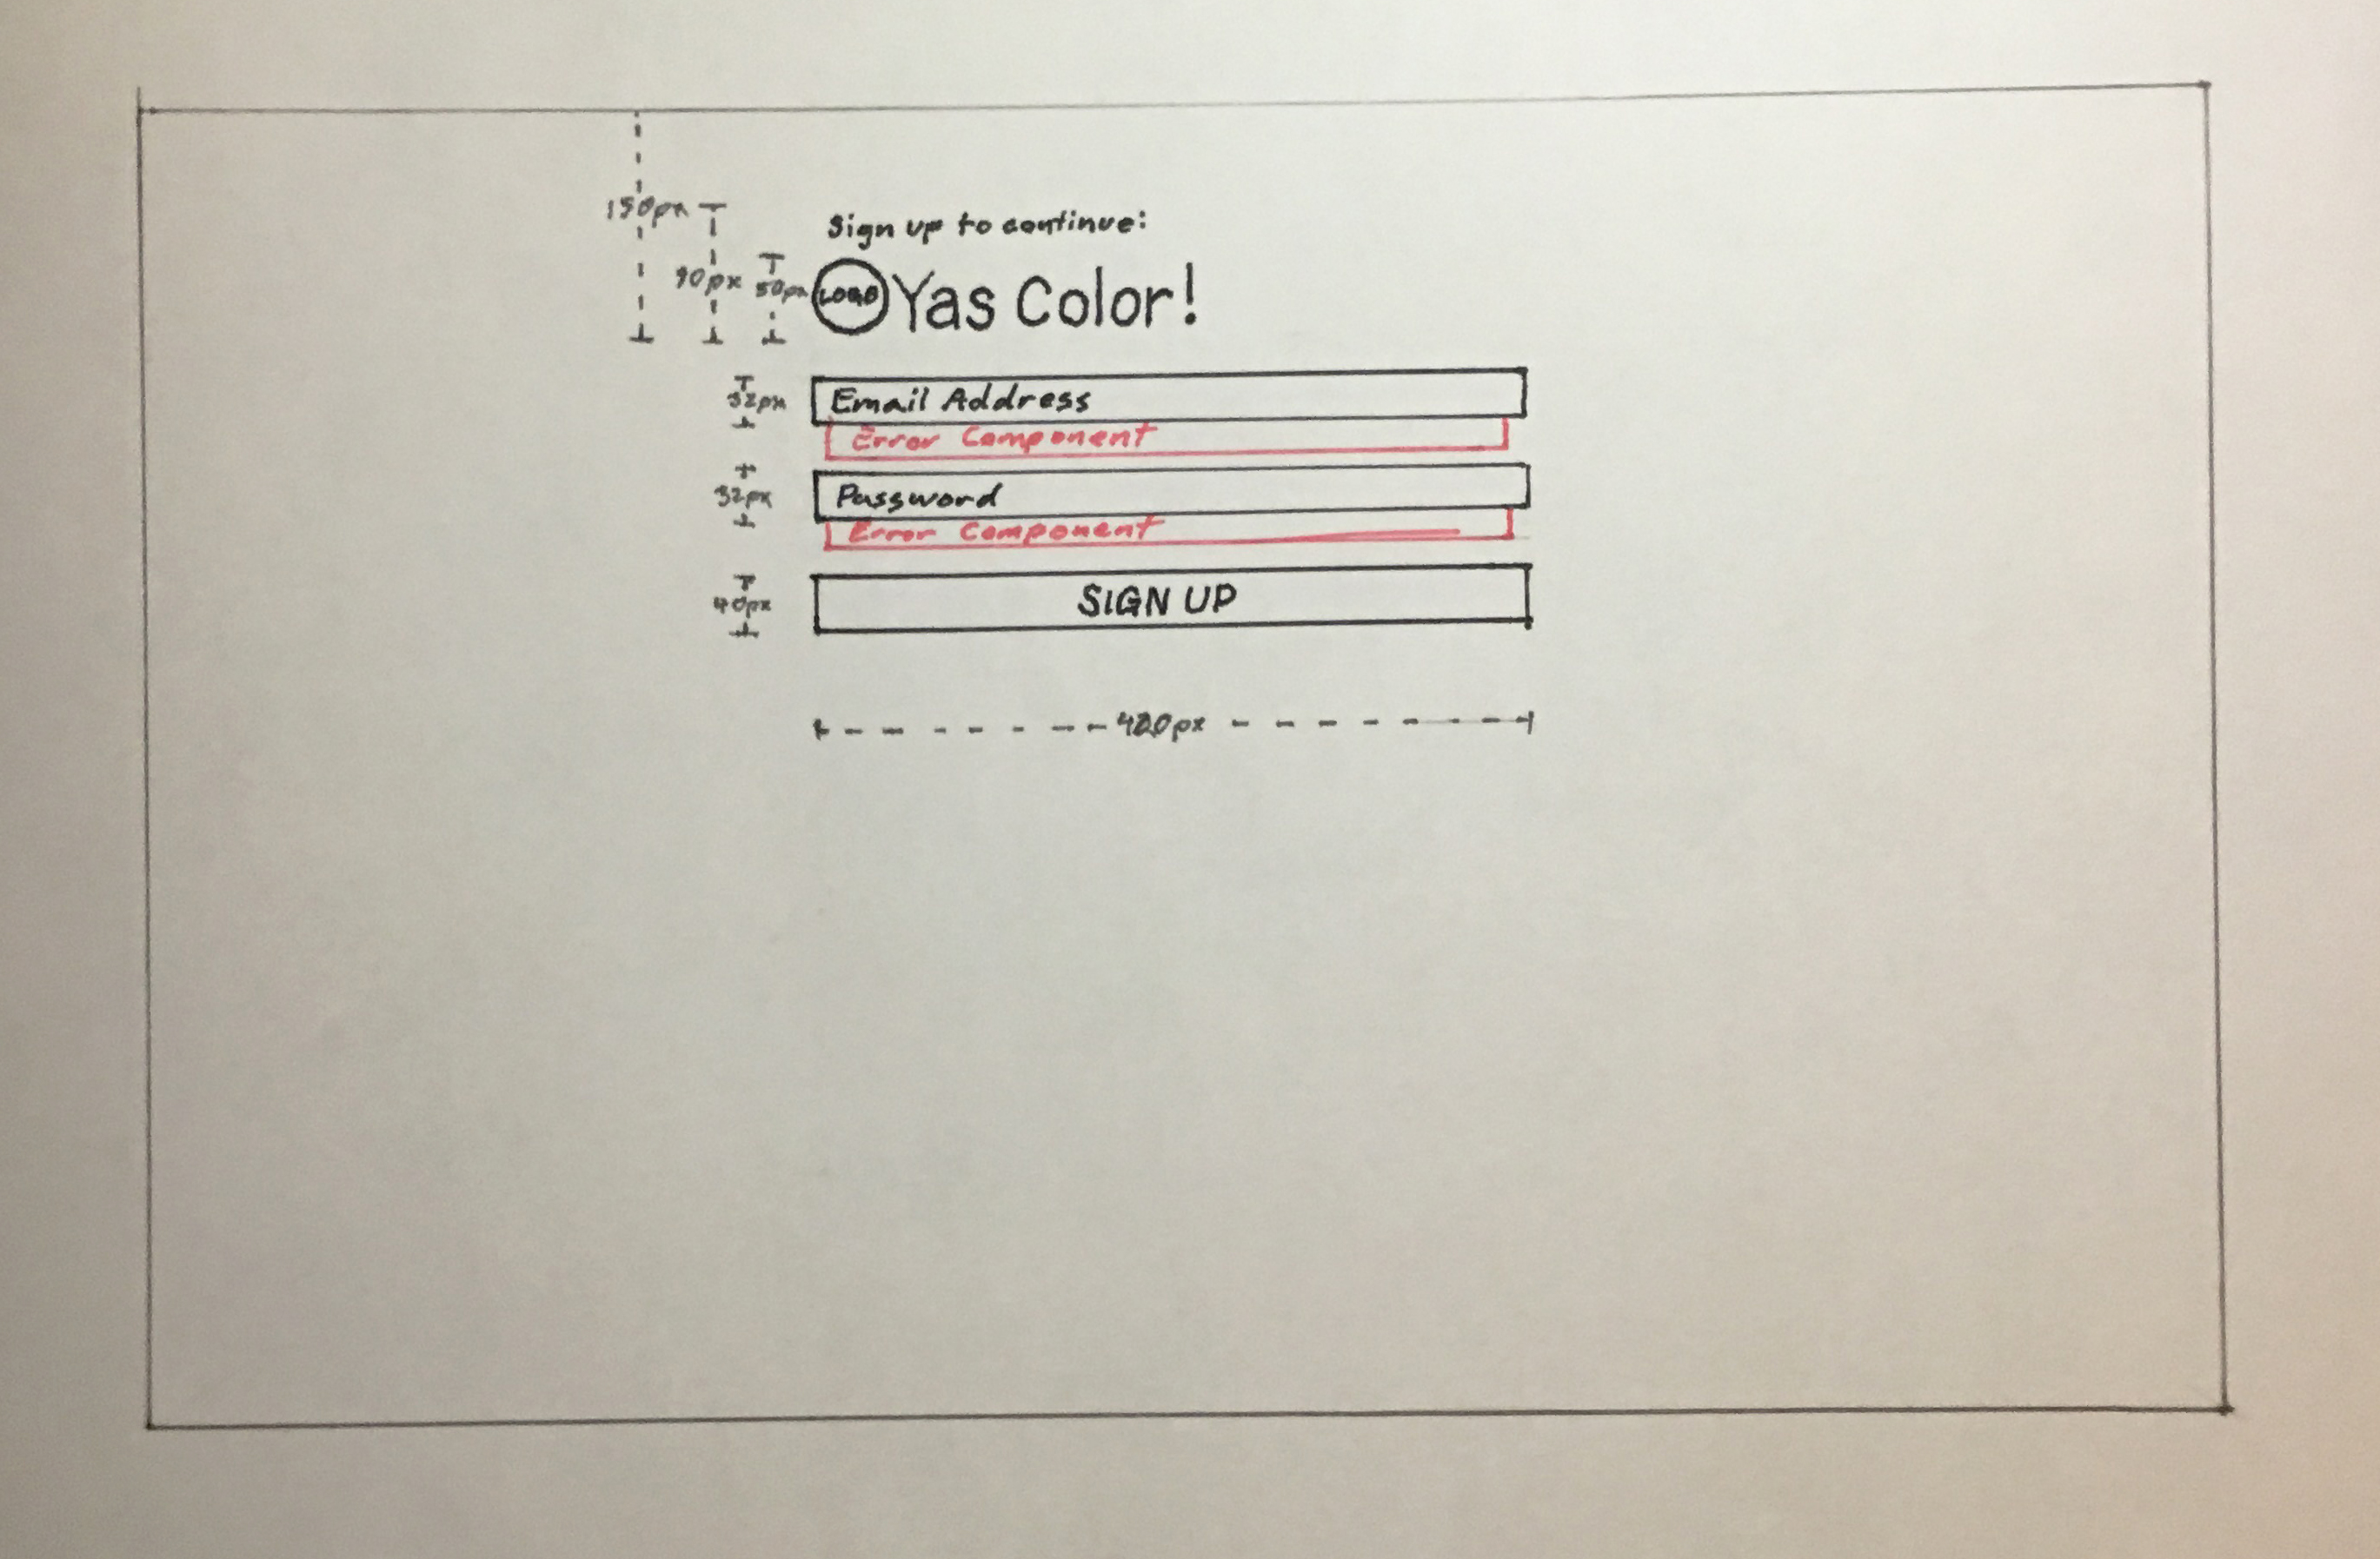 150px
Sign up to continue:
90px
50px
LOGO
Yas Color!
32px
Email Address
Error Component
32px
Password
Error Component
40px
SIGN UP
420px